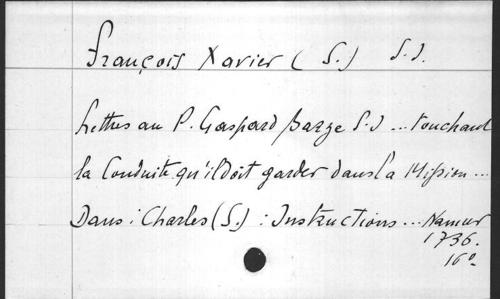 François Xavier (S.) S.J.
Lettres au P. Gaspard Barze S.J ... touchant
la Conduite qu'il doit garder dans la Mission ...
Dans : Charles (S.) : Instructions ... Namur
1736.
16º.